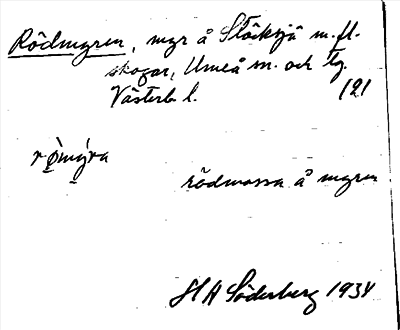 Rödmyren, myr å Stöcksjö m. fl.
skogar, Umeå sn. och tg.
Västerb l. 121
rø̀mýra
rödmossa å myren
H A Söderberg 1934